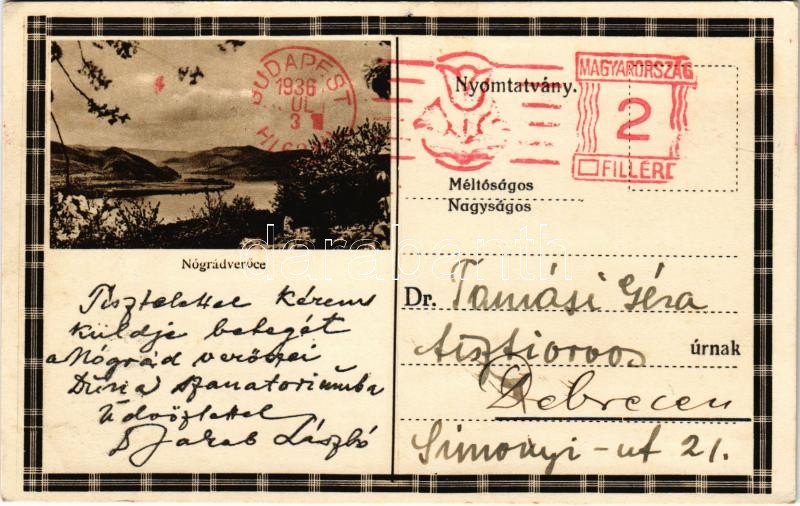 BUDAPEST
1936
UL
3
Nyomtatvány.
MAGYARORSZÁG
2
FILLÉR
Méltóságos
Nagyságos
darabanth
Nógrádverőce
Tisztelettel kérem
küldje betegét
a Nógrád verőcei
Duna szanatoriumba
Üdvözlettel
Dr Jakab László
Dr. Tamási Géza
tisztiorvos úrnak
Debrecen
Simonyi-ut 21.